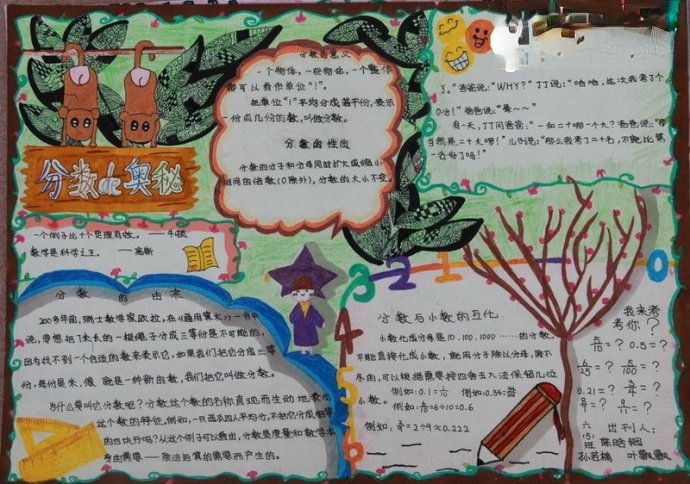 分数de奥秘
分数的意义
一个物体，一些物体，一个整体
都可以看作单位“1”。
把单位“1”平均分成若干份，表示
一份或几份的数，叫做分数。
分数的性质
分数的分子和分母同时扩大或缩小
相同的倍数（0除外），分数的大小不变。
丁。”爸爸说：“WHY？”丁丁说：“哈哈，这次我考了个
0分！”爸爸说：
有一天，丁丁问爸爸：“一和二十哪一个大？爸爸说：
当然是二十大啰！”儿子说：“那么我考了二十名，不就比第
一名好了吗！”
一个例子比十个定理有效。——牛顿
数学是科学之王。——高斯
分数的由来
200多年前，瑞士数学家欧拉，在《通用算术》一书中
说，要想把7米长的一根绳子分成三等份是不可能的，
因为找不到一个合适的数来表示它，如果我们把它分成三等
份，每份是 米，像 就是一种新的数，我们把它叫做分数。
为什么要叫它分数呢？分数这个数的名称直观而生动地表示
这个数的特征。例如，一只西瓜四人平均分，不把它分成相等
的四块行吗？从这个例子可以看出，分数是度量和数学本
身的需要——除法运算的需要而产生的。
3 2 1 0
4
5
6
分数与小数的互化
小数化成分母是10、100、1000……的分数。
不能直接化成小数，能用分子除以分母，除不
尽的，可以根据需要按四舍五入法保留几位
小数。
例如：0.1=1/10 例如：0.34=
例如：6/10=6÷10=0.6
例如：2/9=2÷9≈0.222
我来考
考你？
0.5=？
0.21=？
六（5）班
出刊人：